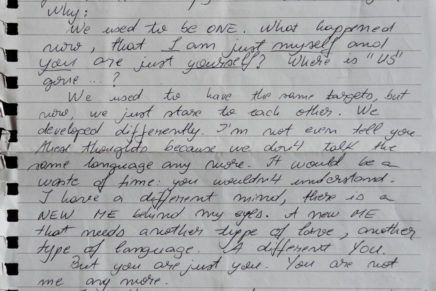 Why:
We used to be ONE. What happened
now, that I am just myself and
you are just yourself? Where is "US"
gone...?
We used to have the same targets, but
now, we just stare to each other. We
developed differently. I'm not even tell you
these thoughts because we don't talk the
same language any more. It would be a
waste of time: you wouldn't understand.
I have a different mind, there is a
NEW ME behind my eyes. A new ME
that needs another type of love, another
type of language. A different YOU.
But you are just you. You are not
me any more.